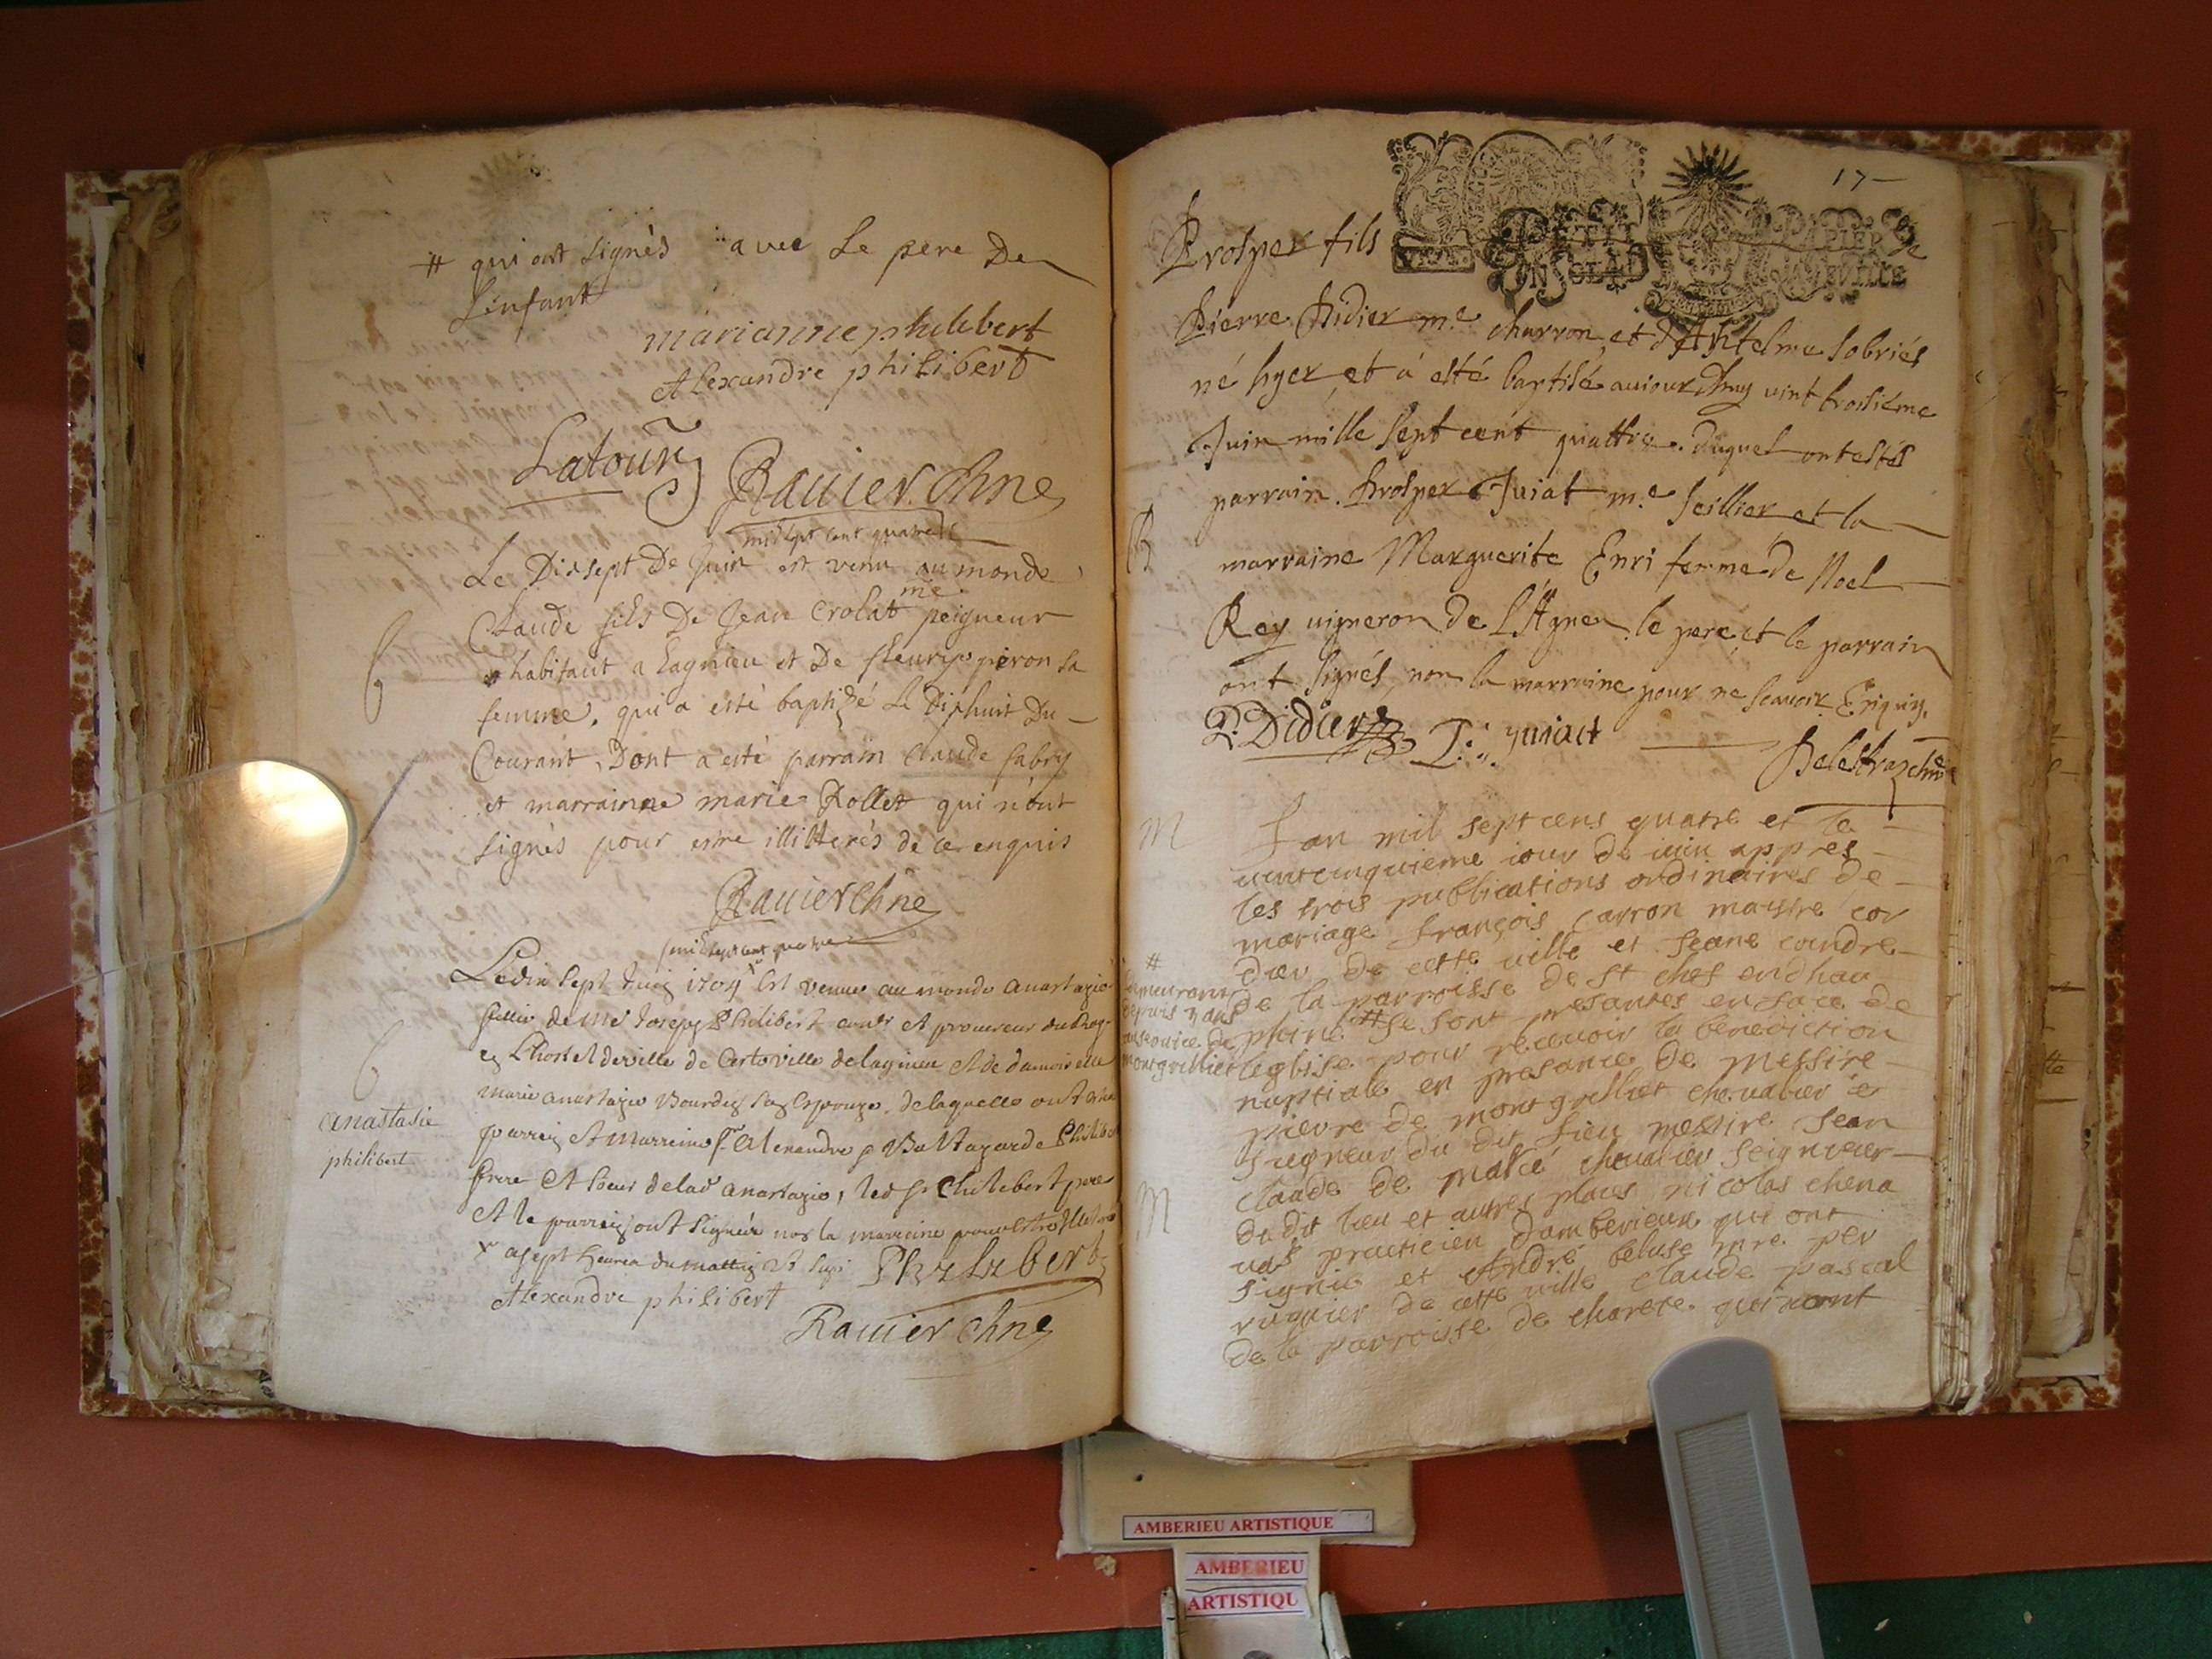 # qui ont signés avec le pere De
L'enfant
marianne philibert
Alexandre philibert
Latour
Rauier Chne
mil sept cent quatre
Le Dixsept De Juin est venu au monde
Claude fils De Jean Crolat me peigneur
habitant a Lagnieu et De fleurye pieron sa
femme, qui a esté baptizé Le Dixhuit Du
Courant, Dont a esté parrain Claude fabry
et marrainne marie Rollet qui n'ont
signés pour estre illitterés de ce enquis
Rauier Chne
mil sept cent quatre
Le dix sept Juin 1704 x Est venue au monde anastazie
fillie de Me Joseph Philibert et procureur du Roy
en Lhostel deville de Cette ville de lagnieu et de damoiselle
marie anastazie Bourdin son Espouze, de laquelle ont esté
parrein Et Marreine Sr alexandre & Baltazarde Philibert
frere Et soeur de lad anastazie, led Sr Philebert pere
Et le parrein ont signéz non la marreine pour estre Illiteré
x a sept heures du mattin
anastasie
philibert
Philibert
Alexandre philibert
Rauier Chne
17
Prosper fils
PETIT
PAPIER
Pierre Didier me charron, et d'Anthelme Sobriés
né hyer, et à esté baptisé aujourdhuy vint troisiéme
Juin mille sept cent quattre. Duquel ont estés
parrain Prosper Juiat me seillier et la
marraine Marguerite Enri femme de Noel
Rey vigneron de L'Agneu le pere, et le parrain
ont signés, non la marraine pour ne scauoir Enquis.
P. Didier P. Juiact
Delestraz chne
M
L an mil sept cens quatre et le
vintcinquieme iour de iuin appres
les trois publications ordinaires de
mariage françois carron maistre cor
dier de cette ville et Jeane coindre
de la parroisse de st chef en dhau
phine # se sont presantes en face de
leglise pour recevoir la benediction
nuptiale en presance de messire
pierre de montgrillet chevalier et
seigneur du dit lieu messire Jean
claude de marcé chevalier seigneur
du dit lieu et autres places nicolas chena
vas practicien damberieux qui ont
signie et André beluse mre per
ruquier de cette ville claude pascal
de la parroisse de charete qui nont
#
demeurant
depuis 3 ans
au service de
montgrillet
M
AMBERIEU ARTISTIQUE
AMBERIEU
ARTISTIQU